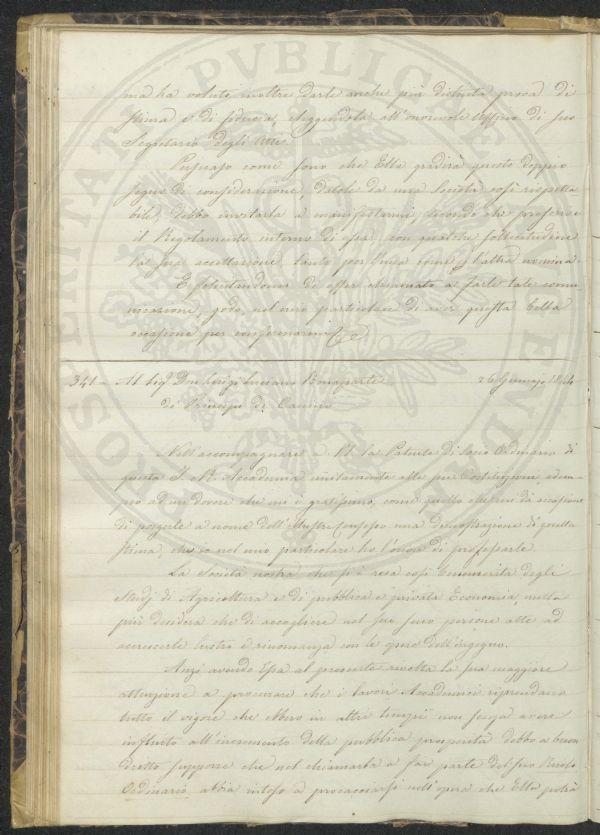 ma ha voluto inoltre darle anche più distinta prova di
stima e di fiducia, eleggendola all'onorevole Uffizio di suo
Segretario degli Atti.
Persuaso come sono che Ella gradirà questo doppio
segno di considerazione, datole da una Società così rispetta
bile, debbo invitarla a manifestarmi, secondo che prescrive
il Regolamento interno di essa, con qualche sollecitudine
la sua accettazione tanto per l'una come p. l'altra nomina.
E felicitandomi di esser chiamato a farle tale comu-
nicazione, godo nel mio particolare di aver questa bella
occasione per confermarmi &c.
341 = Al Sigr Don Luigi Luciano Bonaparte 26 Gennajo 1844
de' Principi di Canino
Nell'accompagnare a V.S. la Patente di Socio Ordinario di
questa I. e R. Accademia unitamente alle sue Costituzioni, adem-
pio ad un dovere che mi è gratissimo, come quello che mi dà occasione
di porgerle a nome dell'Illustre Consesso una dimostrazione di quella
stima, che io nel mio particolare ho l'onore di professarle.
La Società nostra che si è resa così benemerita degli
Studj di Agricoltura e di pubblica e privata Economia, nulla
più desidera che di accogliere nel suo seno persone atte ad
accrescerle lustro e rinomanza con le opere dell'ingegno.
Anzi avendo Essa al presente rivolta la sua maggiore
attenzione a procurare che i lavori Accademici riprendano
tutto il vigore che ebbero in altri tempi non senza avere
influito all'incremento della pubblica prosperità debbo a buon
diritto supporre che nel chiamarla a far parte del suo Ruolo
Ordinario abbia inteso a procacciarsi nell'opera che Ella potrà
PROSPERITATI PVBLICAE